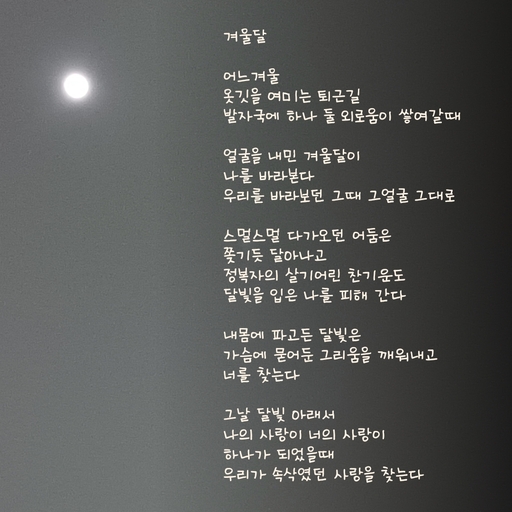 겨울달
어느겨울
옷깃을 여미는 퇴근길
발자국에 하나 둘 외로움이 쌓여갈때
얼굴을 내민 겨울달이
나를 바라본다
우리를 바라보던 그때 그얼굴 그대로
스멀스멀 다가오던 어둠은
쫓기듯 달아나고
정복자의 살기어린 찬기운도
달빛을 입은 나를 피해 간다
내몸에 파고든 달빛은
가슴에 묻어둔 그리움을 깨워내고
너를 찾는다
그날 달빛 아래서
나의 사랑이 너의 사랑이
하나가 되었을때
우리가 속삭였던 사랑을 찾는다